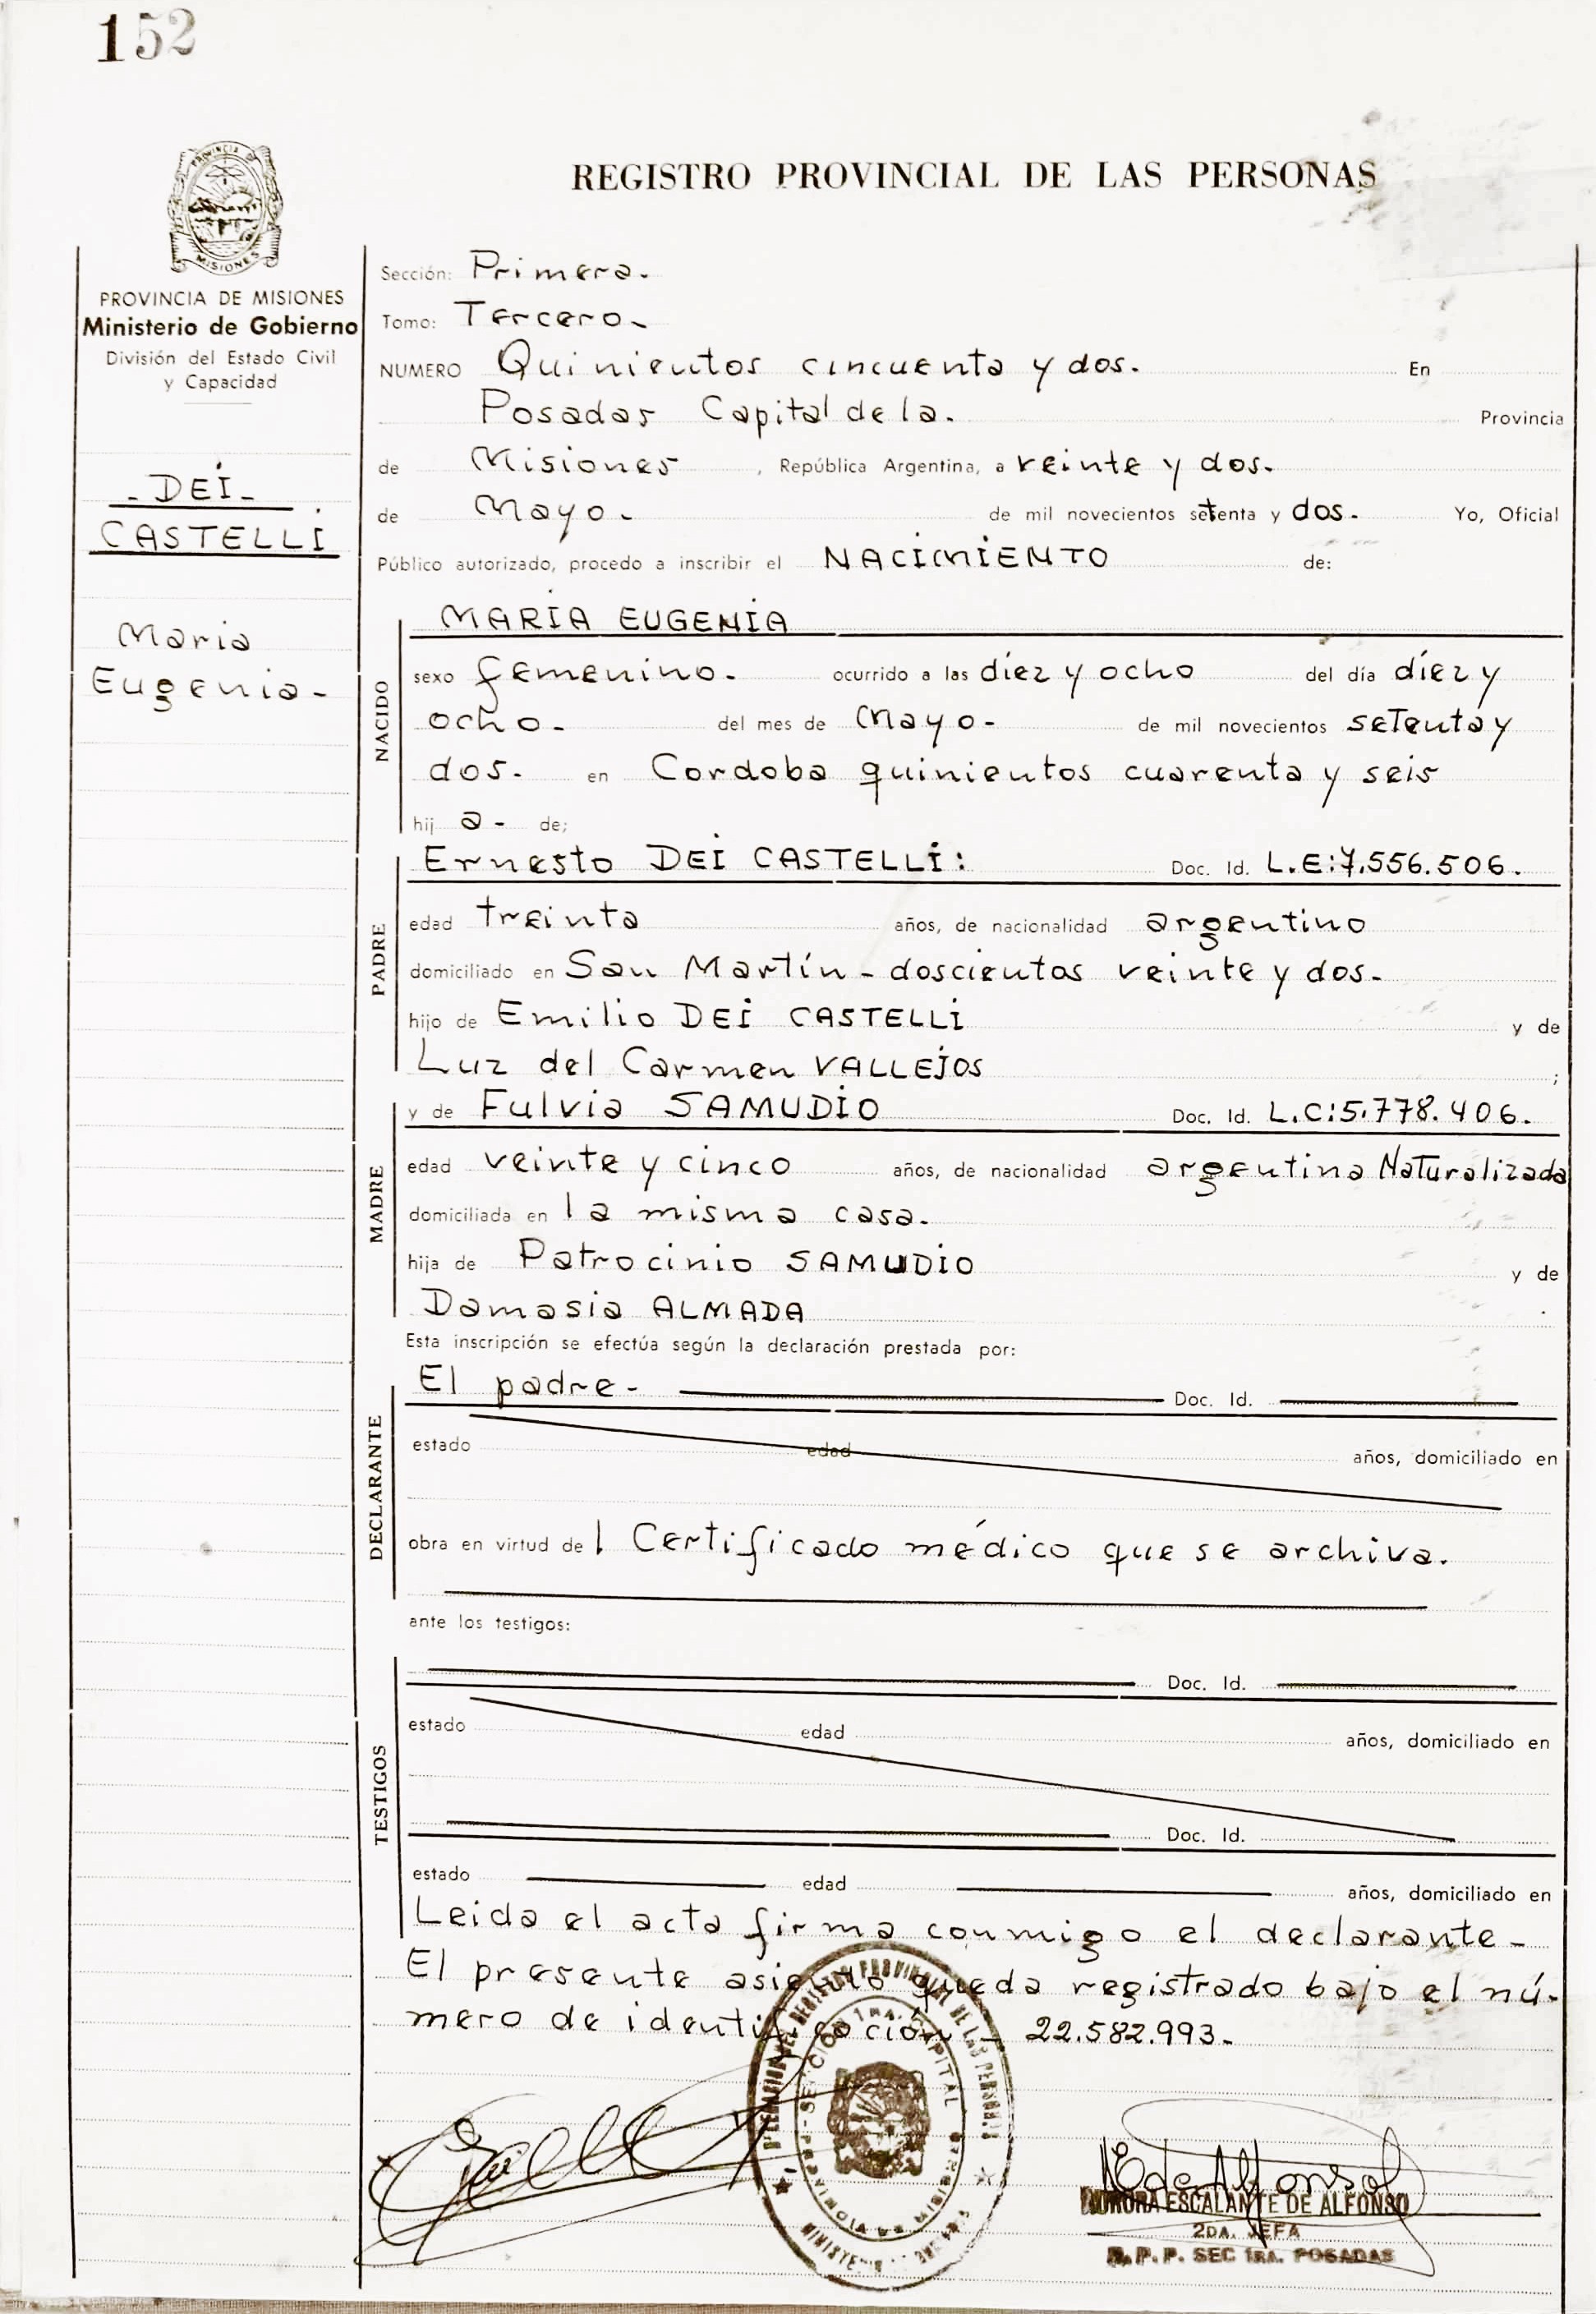 152
PROVINCIA DE
MISIONES
REGISTRO PROVINCIAL DE LAS PERSONAS
PROVINCIA DE MISIONES
Ministerio de Gobierno
División del Estado Civil
y Capacidad
- DEI -
CASTELLI
Maria
Eugenia -
Sección: Primera.
Tomo: Tercero -
NUMERO Quinientos cincuenta y dos. En
Posadas Capital de la. Provincia
de Misiones , República Argentina, a veinte y dos.
de Mayo - de mil novecientos setenta y dos. Yo, Oficial
Público autorizado, procedo a inscribir el NACIMIENTO de:
NACIDO
MARIA EUGENIA
sexo femenino. ocurrido a las díez y ocho del día díez y
ocho - del mes de Mayo - de mil novecientos setenta y
dos. en Cordoba quinientos cuarenta y seis
hij a - de;
PADRE
Ernesto DEI CASTELLI: Doc. Id. L.E:7.556.506.
edad treinta años, de nacionalidad argentino
domiciliado en San Martín - doscientos veinte y dos.
hijo de Emilio DEI CASTELLI y de
Luz del Carmen VALLEJOS ;
MADRE
y de Fulvia SAMUDIO Doc. Id. L.C:5.778.406.
edad veinte y cinco años, de nacionalidad argentina Naturalizada
domiciliada en la misma casa.
hija de Patrocinio SAMUDIO y de
Damasia ALMADA .
Esta inscripción se efectúa según la declaración prestada por:
DECLARANTE
El padre - Doc. Id.
estado edad años, domiciliado en
obra en virtud de l Certificado médico que se archiva.
ante los testigos:
TESTIGOS
Doc. Id.
estado edad años, domiciliado en
Doc. Id.
estado edad años, domiciliado en
Leida el acta firma conmigo el declarante -
El presente asiento queda registrado bajo el nú-
mero de identificación - 22.582.993 -
SECCION 1RA. CAPITAL
ESCALANTE DE ALFONSO
2DA. JEFA
R.P.P. SEC 1RA. POSADAS